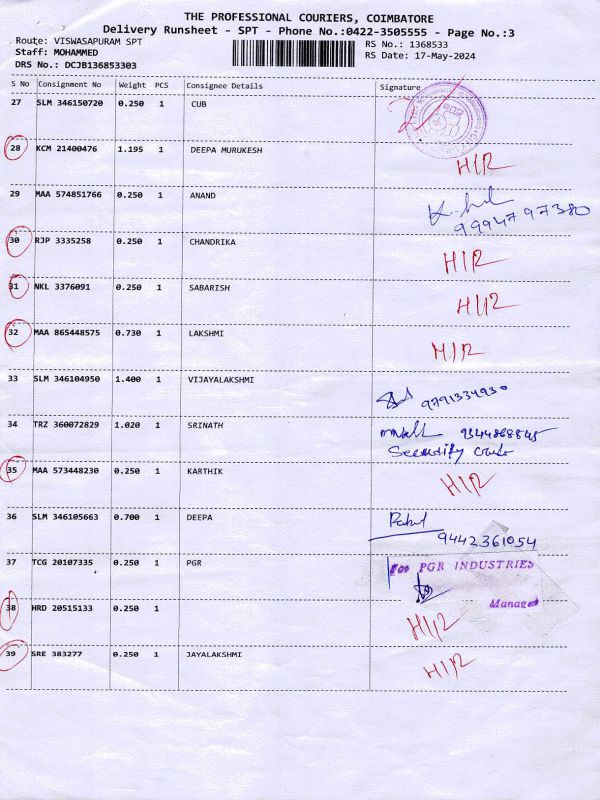 THE PROFESSIONAL COURIERS, COIMBATORE
Delivery Runsheet - SPT - Phone No.:0422-3505555 - Page No.:3
Route: VISWASAPURAM SPT
RS No.: 1368533
Staff: MOHAMMED
RS Date: 17-May-2024
DRS No.: DCJB136853303
S No Consignment No Weight PCS Consignee Details Signature
27 SLM 346150720 0.250 1 CUB
28 KCM 21400476 1.195 1 DEEPA MURUKESH H/R
29 MAA 574851766 0.250 1 ANAND
9994797380
30 RJP 3335258 0.250 1 CHANDRIKA H/R
31 NKL 3376091 0.250 1 SABARISH H/R
32 MAA 865448575 0.730 1 LAKSHMI H/R
33 SLM 346104950 1.400 1 VIJAYALAKSHMI 9791334930
34 TRZ 360072829 1.020 1 SRINATH 9344868845
35 MAA 573448230 0.250 1 KARTHIK H/R
36 SLM 346105663 0.700 1 DEEPA
9442361054
37 TCG 20107335 0.250 1 PGR For PGR INDUSTRIES
Manager
38 HRD 20515133 0.250 1 H/R
39 SRE 383277 0.250 1 JAYALAKSHMI H/R